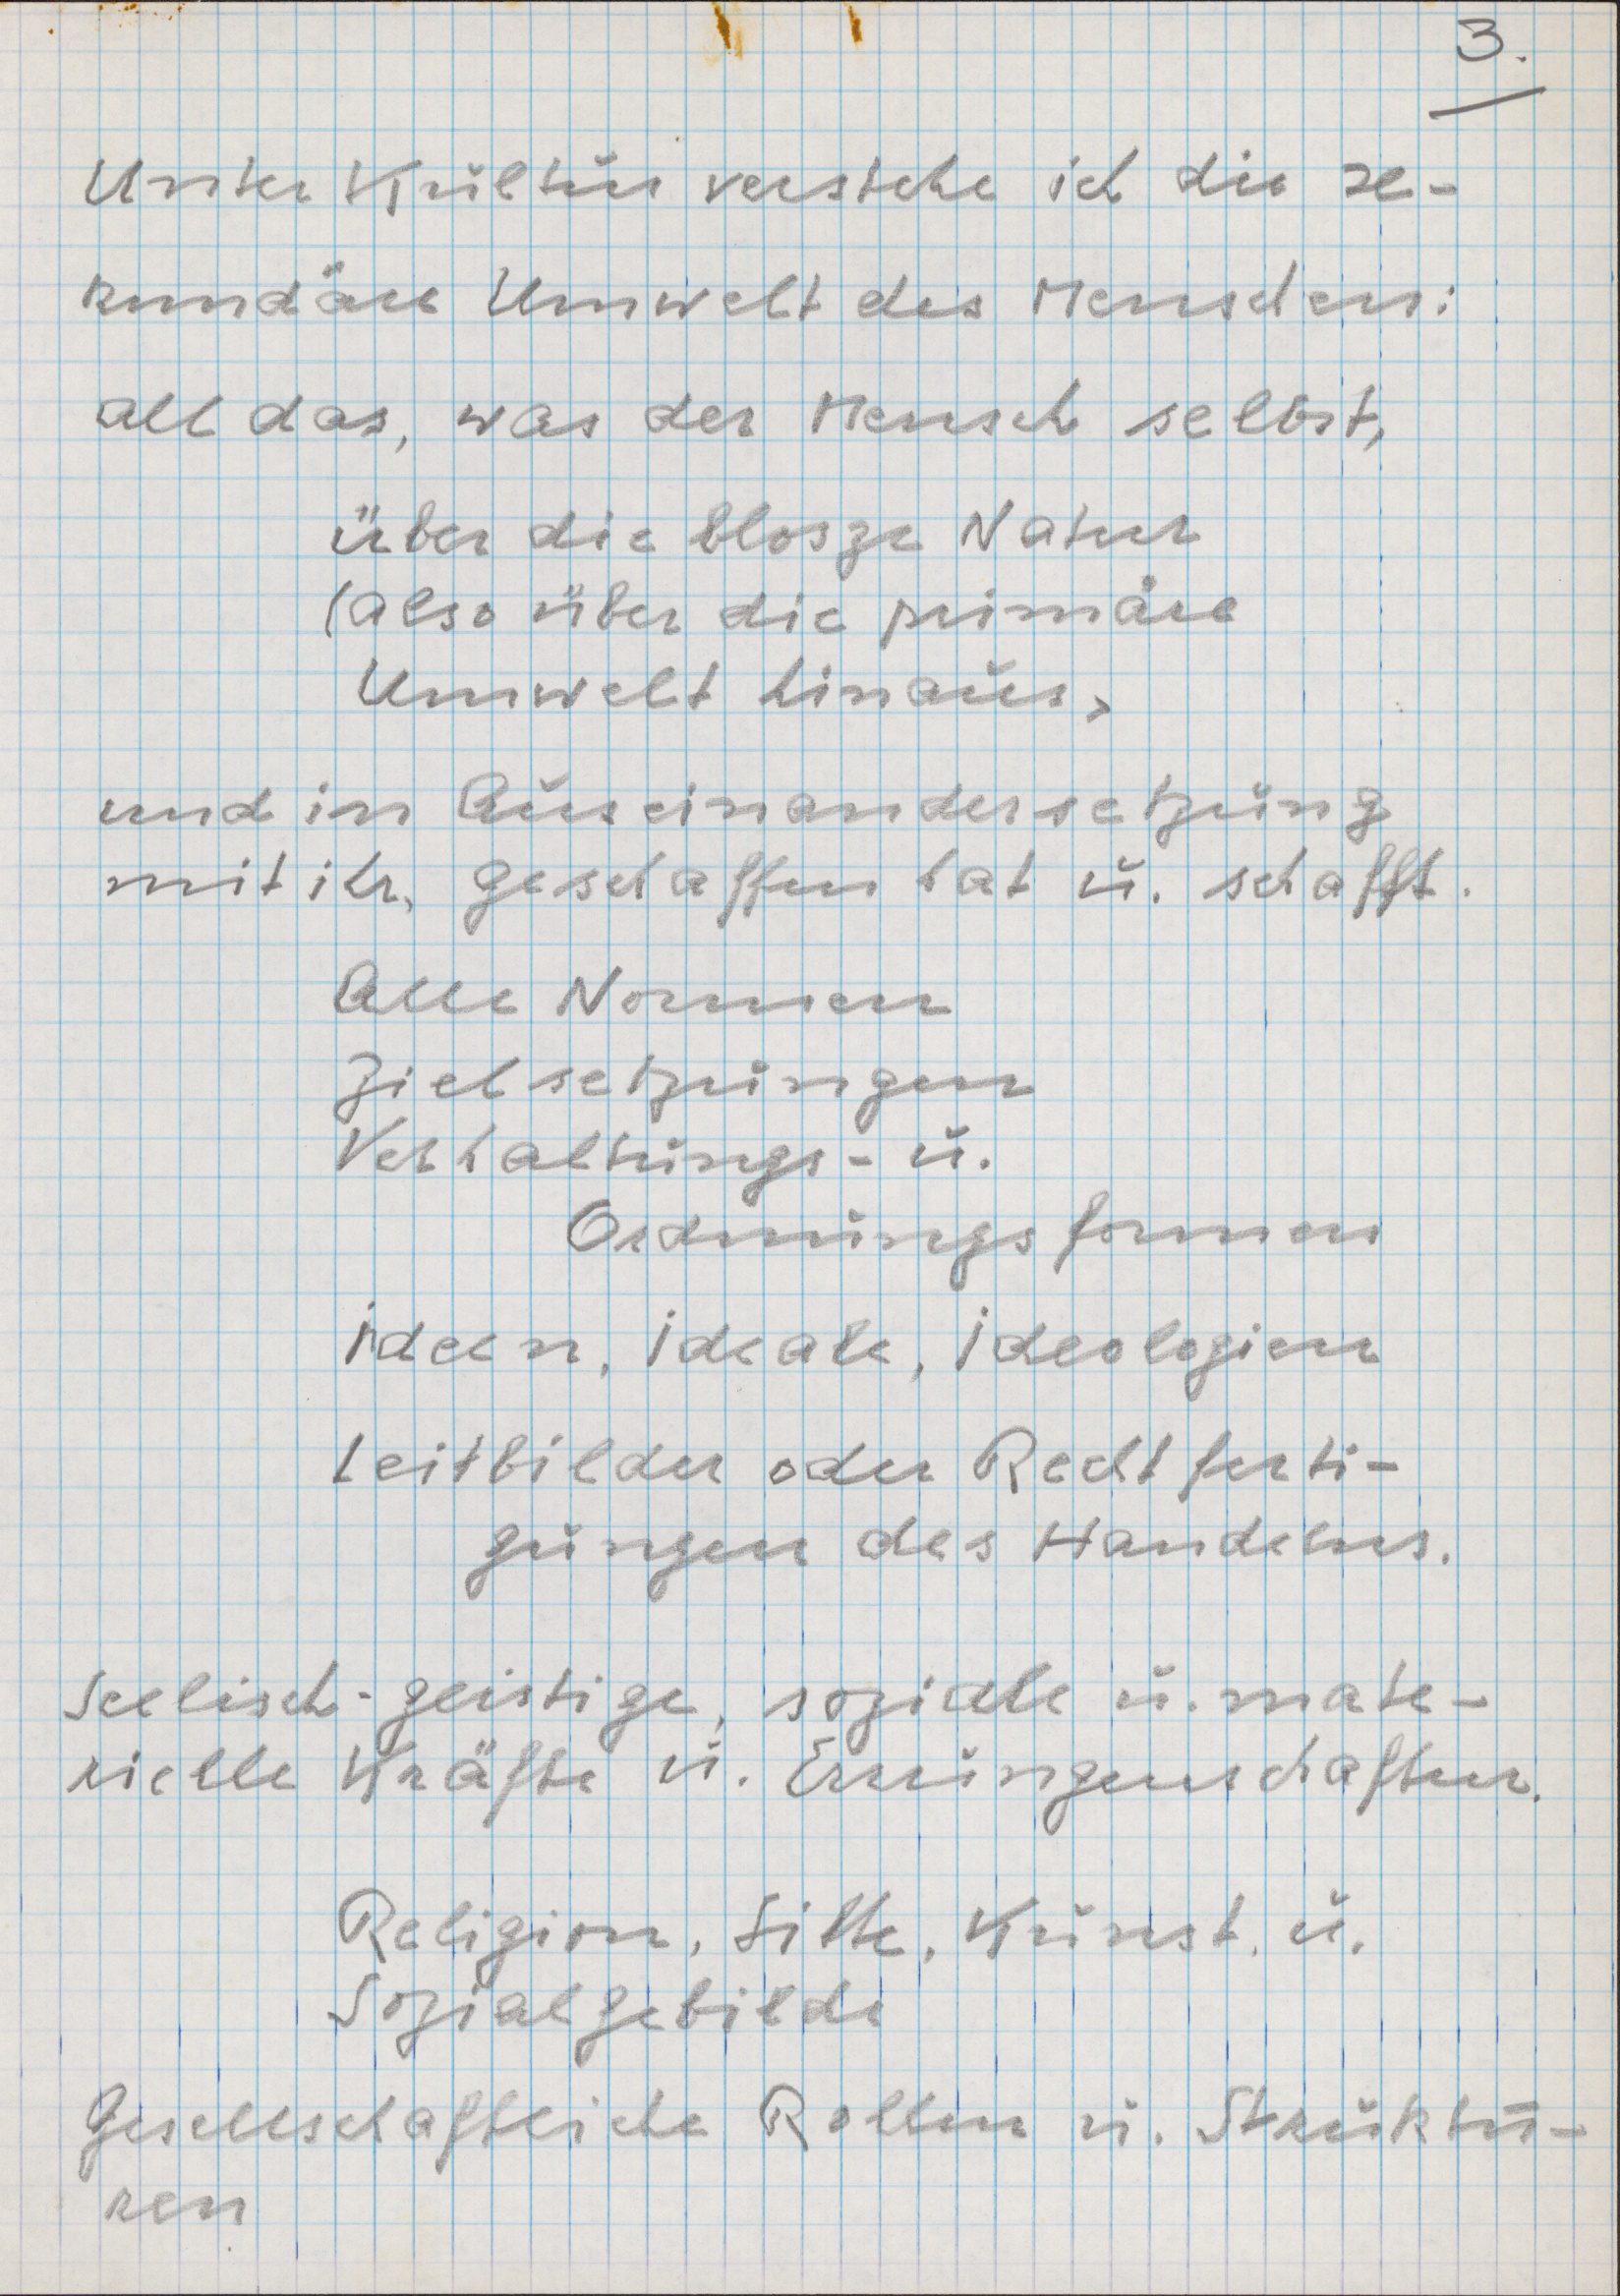 3.
Unter Kultur verstehe ich die se-
kundäre Umwelt des Menschen:
all das, was der Mensch selbst,
über die blosze Natur
(also über die primäre
Umwelt hinaus,
und in Auseinandersetzung
mit ihr, geschaffen hat u. schafft.
Alle Normen
Zielsetzungen
Verhaltungs- u.
Ordnungsformen
Ideen, Ideale, Ideologien
Leitbilder oder Rechtferti-
gungen des Handelns.
Seelisch-geistige, soziale u. mate-
rielle Kräfte u. Errungenschaften.
Religion, Sitte, Kunst, u.
Sozialgebilde
Gesellschaftliche Rollen u. Struktu-
ren